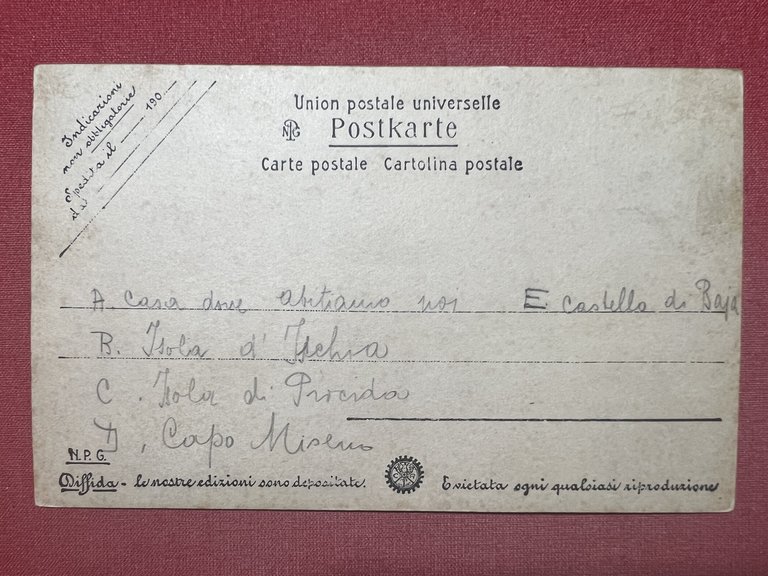 Indicazioni
non obbligatorie
Spedita il 190
da
Union postale universelle
NPG Postkarte
Carte postale Cartolina postale
A. Casa dove abitiamo noi E. Castello di Baja
B. Isola d'Ischia
C. Isola di Procida
D. Capo Miseno
N.P.G.
Diffida - le nostre edizioni sono depositate. E vietata ogni qualsiasi riproduzione